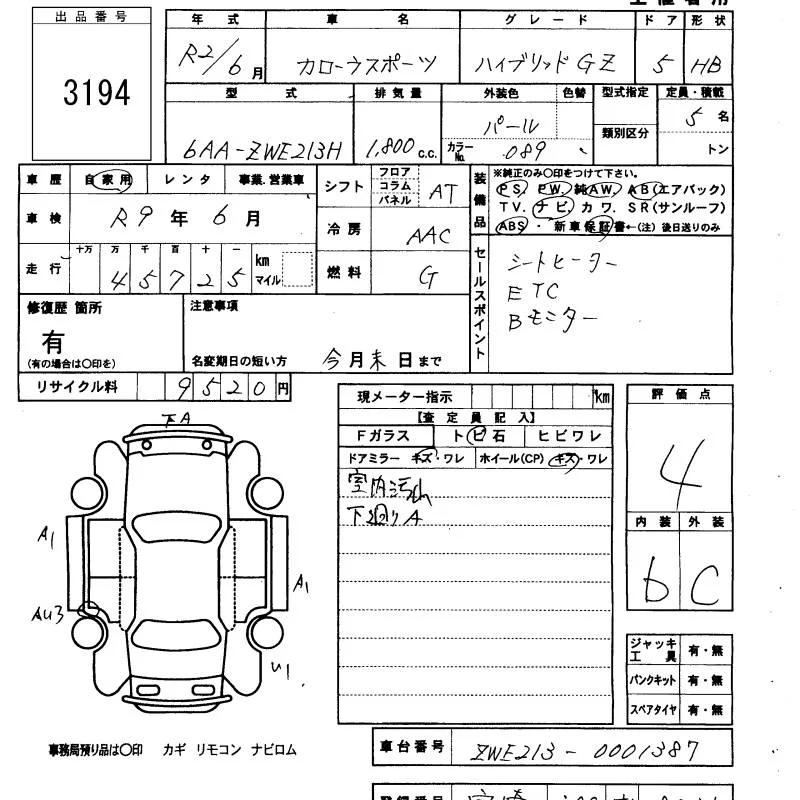 出品番号
3194
年式 車名 グレード ドア 形状
R2/6月 カローラスポーツ ハイブリッドGZ 5 HB
型式 排気量 外装色 色替 型式指定 定員・積載
6AA-ZWE213H 1,800 c.c. パール 類別区分 5名
カラーNo. 089 トン
車歴 自家用 レンタ 事業.営業車
車検 R9年6月
走行 十万 万 千 百 十 一 km マイル
45725
シフト フロア コラム パネル AT
冷房 AAC
燃料 G
装備品 ※純正のみ〇印をつけて下さい。
PS. PW. 純AW. AB(エアバック)
TV. ナビ. カワ. SR(サンルーフ)
ABS・新車保証書←(注)後日送りのみ
セールスポイント
シートヒーター
ETC
Bモニター
修復歴 箇所
有
(有の場合は〇印を)
注意事項
名変期日の短い方 今月末日まで
リサイクル料 9520円
現メーター指示 km
【査定員記入】
Fガラス トビ石 ヒビワレ
ドアミラー キズ・ワレ ホイール(CP) キズ・ワレ
室内汚れ
下廻りA
評価点
4
内装 外装
b C
ジャッキ工具 有・無
パンクキット 有・無
スペアタイヤ 有・無
下A
A1
A1
AU3
U1
事務局預り品は〇印 カギ リモコン ナビロム
車台番号 ZWE213-0001387